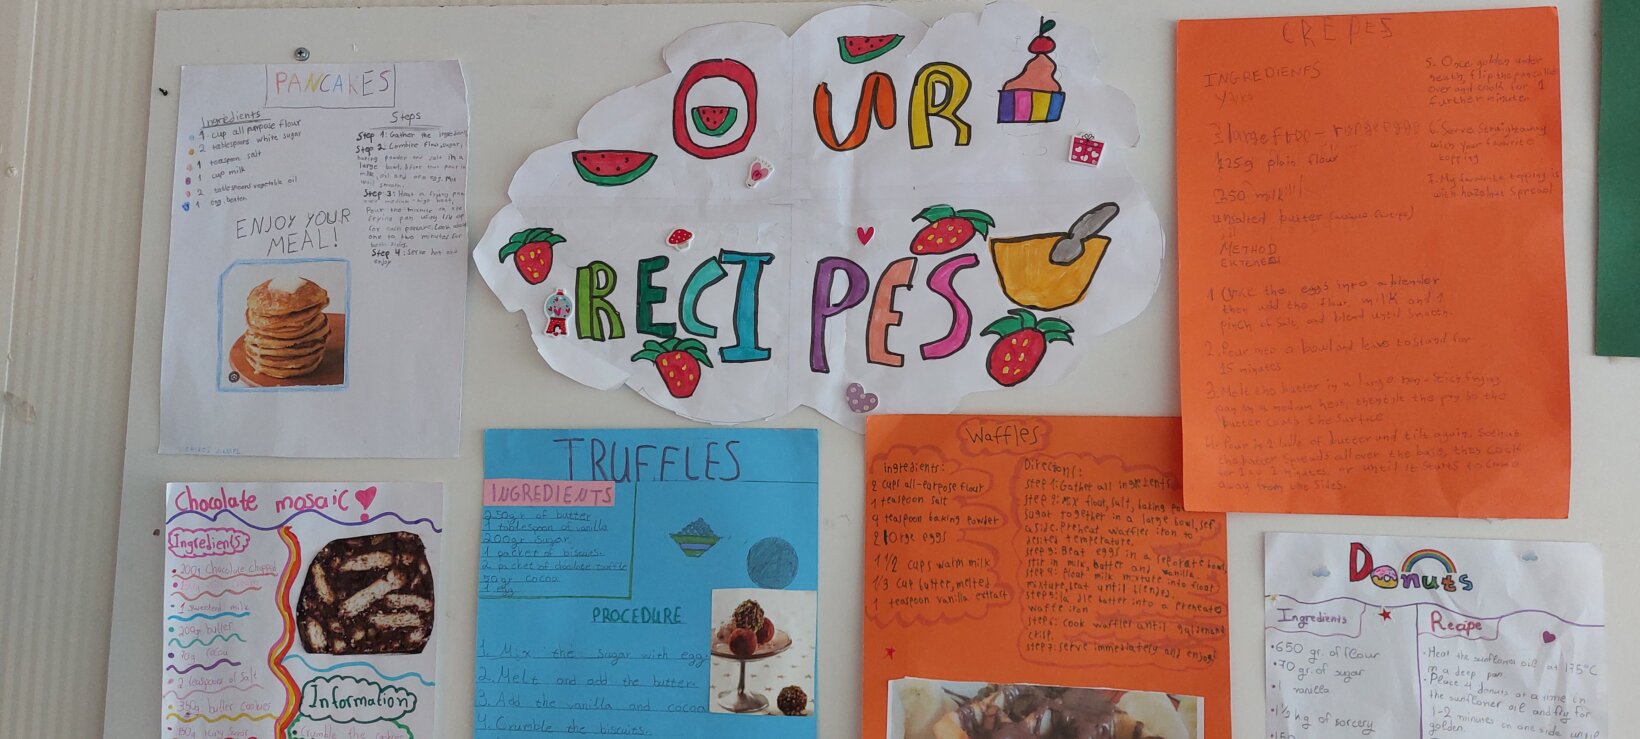 OUR
RECIPES
PANCAKES
Ingredients
1 cup all purpose flour
2 tablespoons white sugar
1 teaspoon salt
1 cup milk
2 tablespoons vegetable oil
1 egg, beaten
ENJOY YOUR
MEAL!
Steps
Step 1: Gather the ingredients
Step 2: Combine flour, sugar,
baking powder and salt in a
large bowl.
milk, oil and egg. Mix
until smooth.
Step 3: Heat a frying pan
over medium-high heat.
Pour the mixture in the
frying pan using 1/4 cup
for each pancake. Cook about
one to two minutes for
both sides.
Step 4: Serve hot and
enjoy
CREPES
INGREDIENTS
3 large free-range eggs
125g plain flour
250 milk
unsalted butter
METHOD
1. Crack the eggs into a blender
then add the flour, milk and 1
pinch of salt, and blend until smooth.
2. Pour into a bowl and leave to stand for
15 minutes
3. Melt the butter in a large non-stick frying
pan on a medium heat, then tilt the pan so the
butter coats the surface
4. Pour in 1 ladle of butter and tilt again, so that
the butter spreads all over the base, then cook
for 1 to 2 minutes, or until it starts to come
away from the sides.
5. Once golden under
neath, flip the pancake
over and cook for 1
further minute
6. Serve straightaway
with your favourite
topping
7. My favourite topping is
with hazelnut spread
Chocolate mosaic
Ingredients
200g Chocolate
1 sweetend milk
200gr butter
70g cacao
2 teaspoons of salt
350g butter cookies
150g icing sugar
Information
Crumble the cookies
TRUFFLES
INGREDIENTS
250gr. of butter
1 tablespoon of vanilla
200gr sugar
1 packet of biscuits
a packet of chocolate truffle
50gr cocoa
1 egg
PROCEDURE
1. Mix the sugar with egg
2. Melt and add the butter.
3. Add the vanilla and cocoa
4. Crumble the biscuits.
Waffles
ingredients:
2 cups all-purpose flour
1 teaspoon salt
4 teaspoon baking powder
2 large eggs
1 1/2 cups warm milk
1/3 cup butter, melted
1 teaspoon vanilla extract
Directions:
step 1: Gather all ingredients
step 2: Mix flour, salt, baking
sugar together in a large bowl, set
aside. Preheat waffles iron to
desired temperature.
step 3: Beat eggs in a seperate bowl
stir in milk, butter and vanilla.
step 4: Pour milk mixture into flour
mixture, beat until blended.
step 5: la dle batter into a preheated
waffle iron
step 6: cook waffles until golden and
crisp.
step 7: serve immediately and enjoy!
Donuts
Ingredients
650 gr. of flour
70 gr. of sugar
1 vanilla
Recipe
Heat the sunflower oil at 175°C
in a deep pan.
Place 4 donuts at a time in
the sunflower oil and fry for
1-2 minutes on one side until
golden.